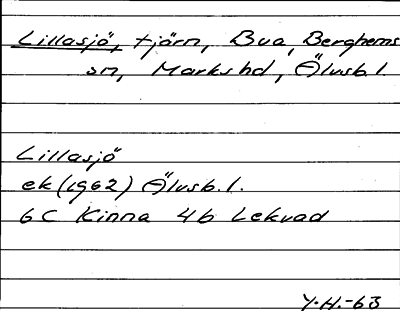 Lillasjö, tjärn, Bua, Berghems
sn, Marks hd, Älvsb.l.
Lillasjö
ek (1962) Älvsb.l.
6C Kinna 4b Lekvad
Y.H.-63